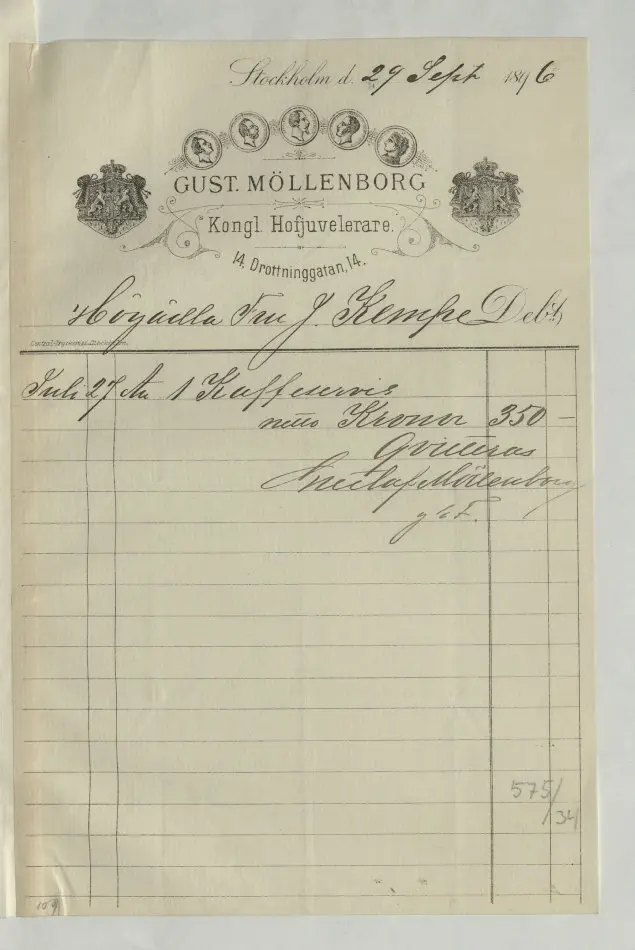 Stockholm d. 29 Sept 1896
GUST. MÖLLENBORG
Kongl. Hofjuvelerare.
14, Drottninggatan, 14.
Högädla Fru J. Kempe Debt,
Central-Tryckeriet, Stockholm.
Juli 27 An 1 Kaffeservis
netto Kronor 350 —
Qvitteras
Gustaf Möllenborg
575/
/34